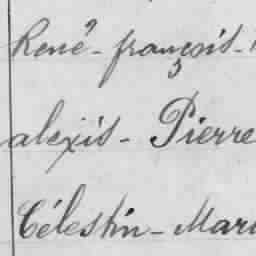 René-françois-
alexis- Pierre
Célestin-Mari